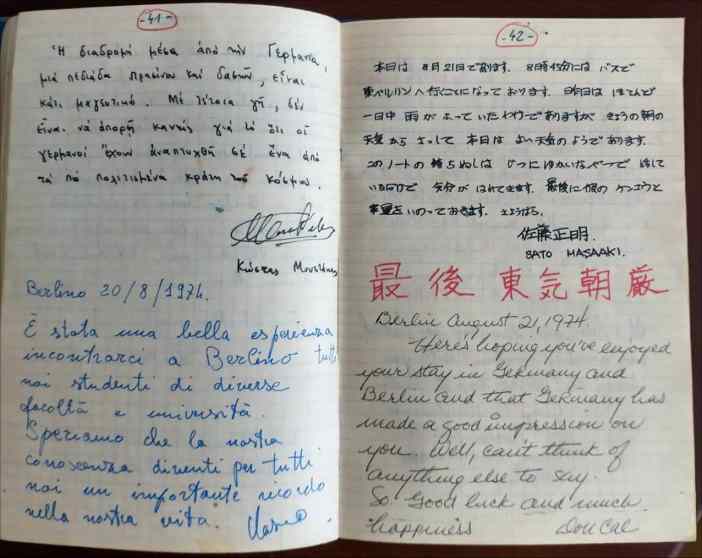 -41-
Ἡ διαδρομή μέσα ἀπό τήν Γερμανία,
μιά πεδιάδα πρασίνου καί δασῶν, εἶναι
κάτι μαγευτικό. Μέ τέτοια γῆ, δέν
εἶναι νά ἀπορῆ κανείς γιά τό ὅτι οἱ
γερμανοί ἔχουν ἀναπτυχθῆ σέ ἕνα ἀπό
τά πιό πολιτισμένα κράτη τοῦ κόσμου.
Κώστας
Berlino 20/8/1974.
È stata una bella esperienza
incontrarci a Berlino tutti
noi studenti di diverse
facoltà e università.
Speriamo che la nostra
conoscenza diventi per tutti
noi un importante ricordo
nella nostra vita.
-42-
本日は 8月21日であります. 8時45分には バスで
東ベルリンへ行くことになって おります. 昨日は ほとんど
一日中 雨が よって いた わけで ありますが きょうの朝の
天気から さっして 本日は よい天気の ようで あります.
このノートの 持ちぬしは じつに ゆかいな やつで 話して
いるだけで 気分が はれてきます. 最後に 彼の ケンコウと
幸運を いのって おきます. さようなら.
佐藤正明.
SATO MASAAKI.
最後東気朝厳
Berlin August 21, 1974
Here's hoping you've enjoyed
your stay in Germany and
Berlin and that Germany has
made a good impression on
you. Well, can't think of
anything else to say.
So Good luck and much
happiness